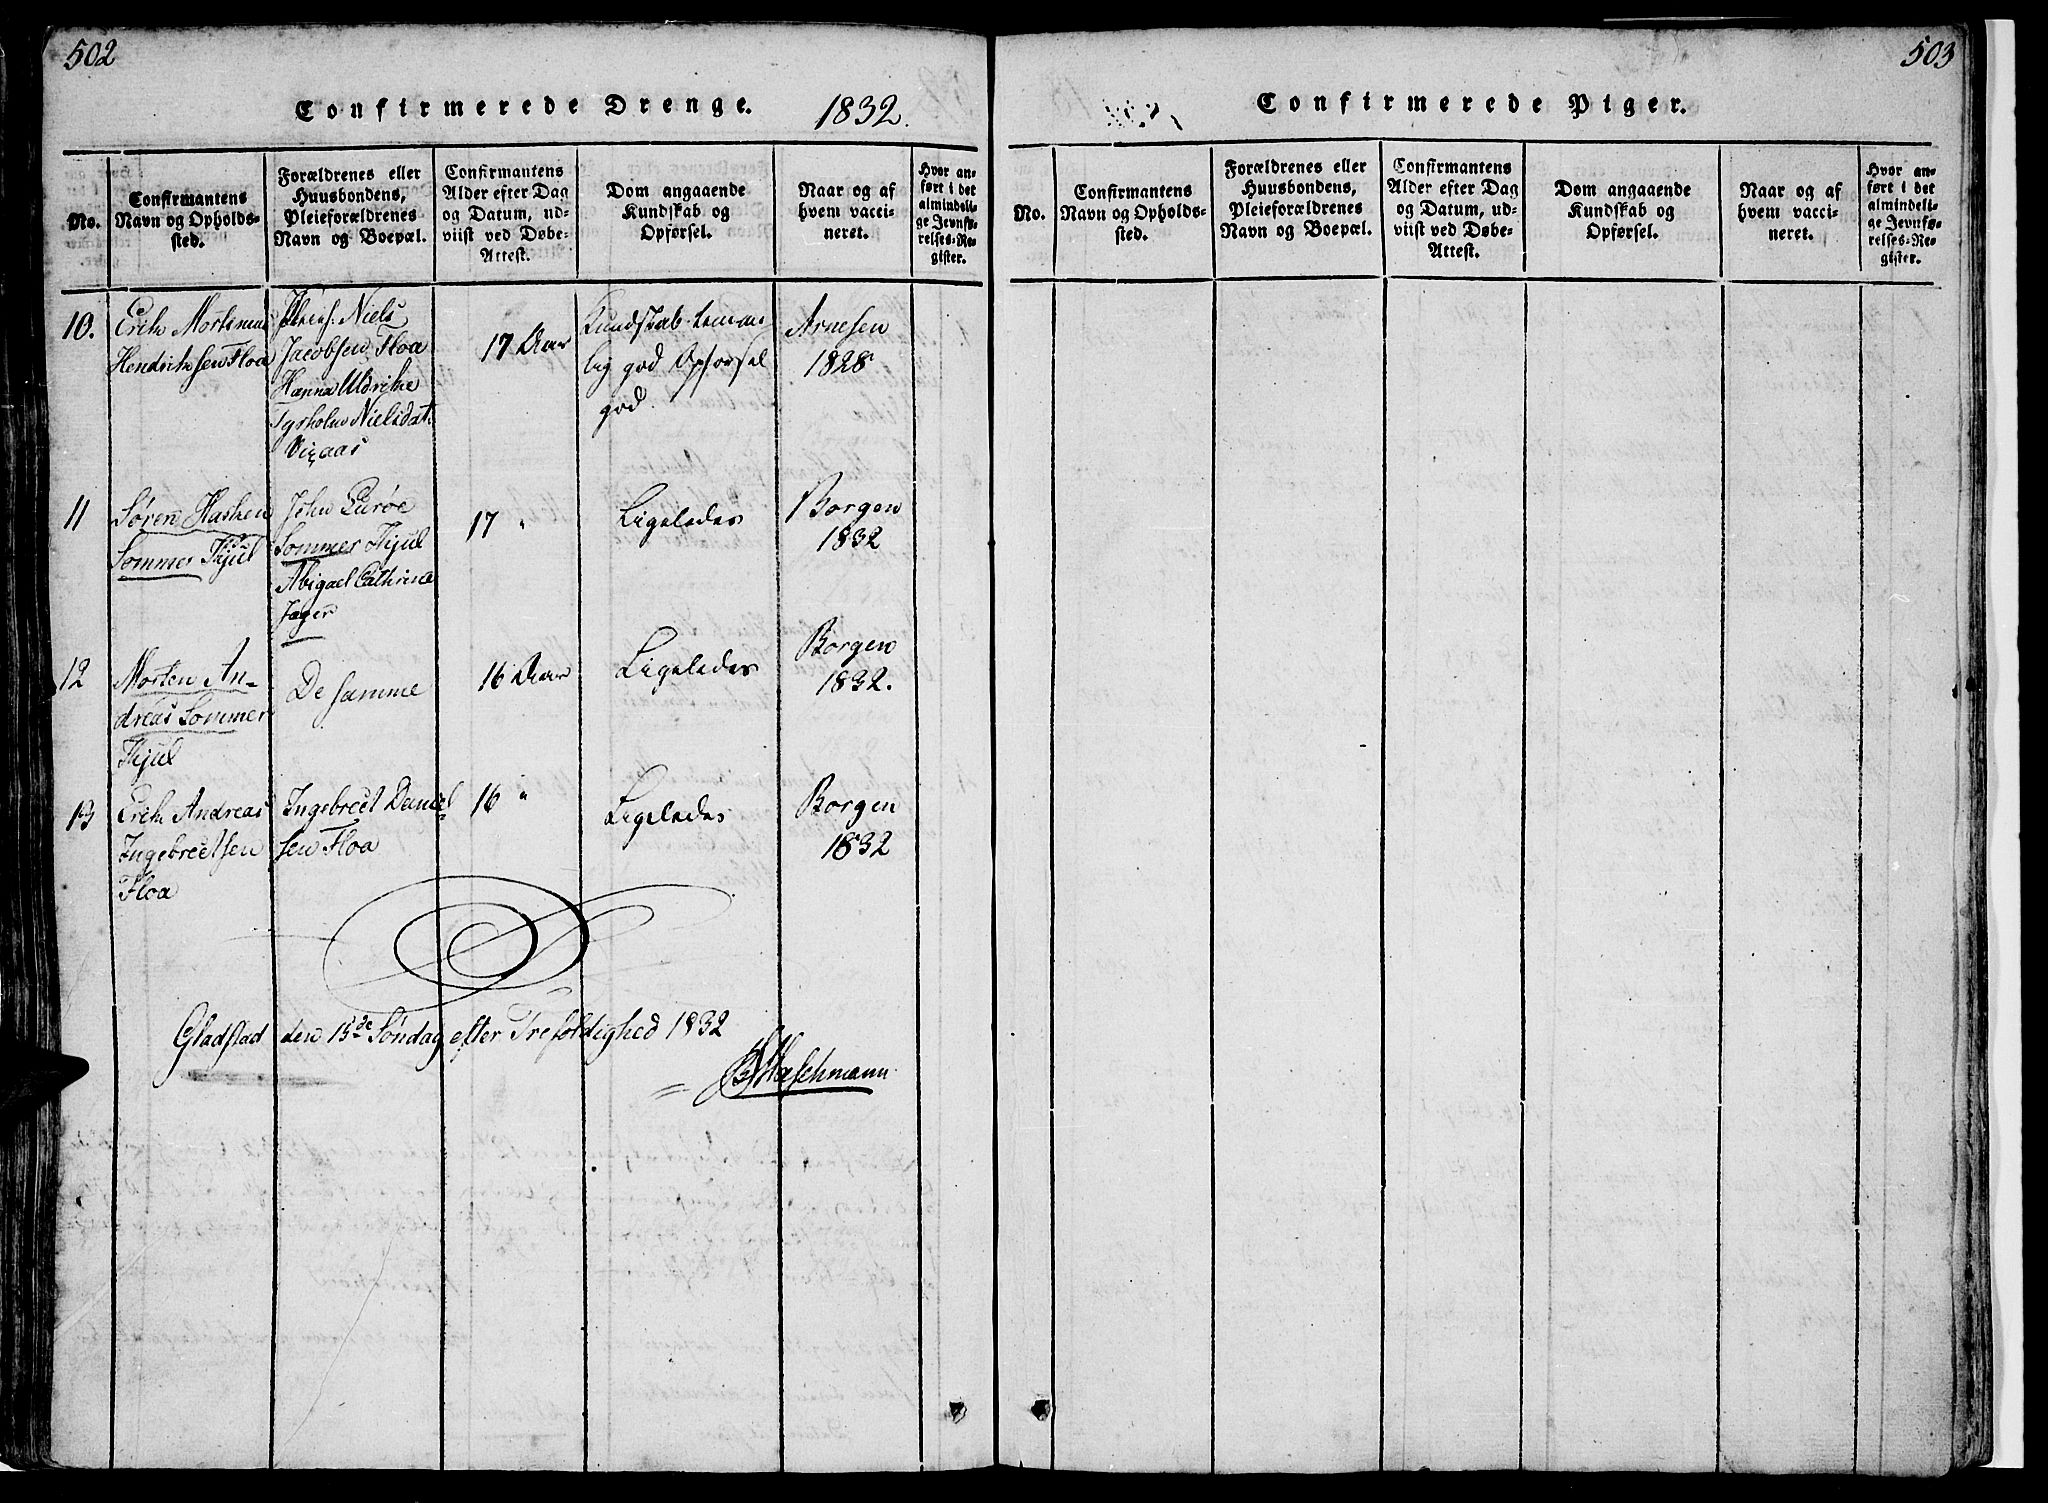 502
Confirmerede Drenge. 1832.
No.
Confirmantens
Navn og Opholds-
sted.
Forældrenes eller
Huusbondens,
Pleieforældrenes
Navn og Boepæl.
Confirmantens
Alder efter Dag
og Datum, ud-
viist ved Døbe-
Attest.
Dom angaaende
Kundskab og
Opførsel.
Naar og af
hvem vacci-
neret.
Hvor an-
ført i det
almindeli-
ge Jevnfø-
relses-Re-
gister.
10.
Erik Mortenus
Hendriksen Floa
Niels
Jacobsen Floa
Hanna Uldrikne
Tyrholm Nielsdat.
Viqaas
17 Aar
Kundskab temme-
lig god Opførsel
god.
Arnesen
1828
11
Søren Hasken
Sommer Tkjul
John Qurøe
Sommer Tkjul
Abigael Cathrine
Jager
17 "
Ligeledes
Borgen
1832
12
Morten An-
dreas Sommer
Tkjul
De samme
16 Aar
Ligeledes
Borgen
1832.
13
Erik Andreas
Ingebreetsen
Floa
Ingebreet Daniel-
sen Floa
16 "
Ligeledes
Borgen
1832
Gladstad den 15de Søndag efter Trefoldighed 1832
Haschmann
503
Confirmerede Piger.
No.
Confirmantens
Navn og Opholds-
sted.
Forældrenes eller
Huusbondens,
Pleieforældrenes
Navn og Boepæl.
Confirmantens
Alder efter Dag
og Datum, ud-
viist ved Døbe-
Attest.
Dom angaaende
Kundskab og
Opførsel.
Naar og af
hvem vacci-
neret.
Hvor an-
ført i det
almindeli-
ge Jevnfø-
relses-Re-
gister.